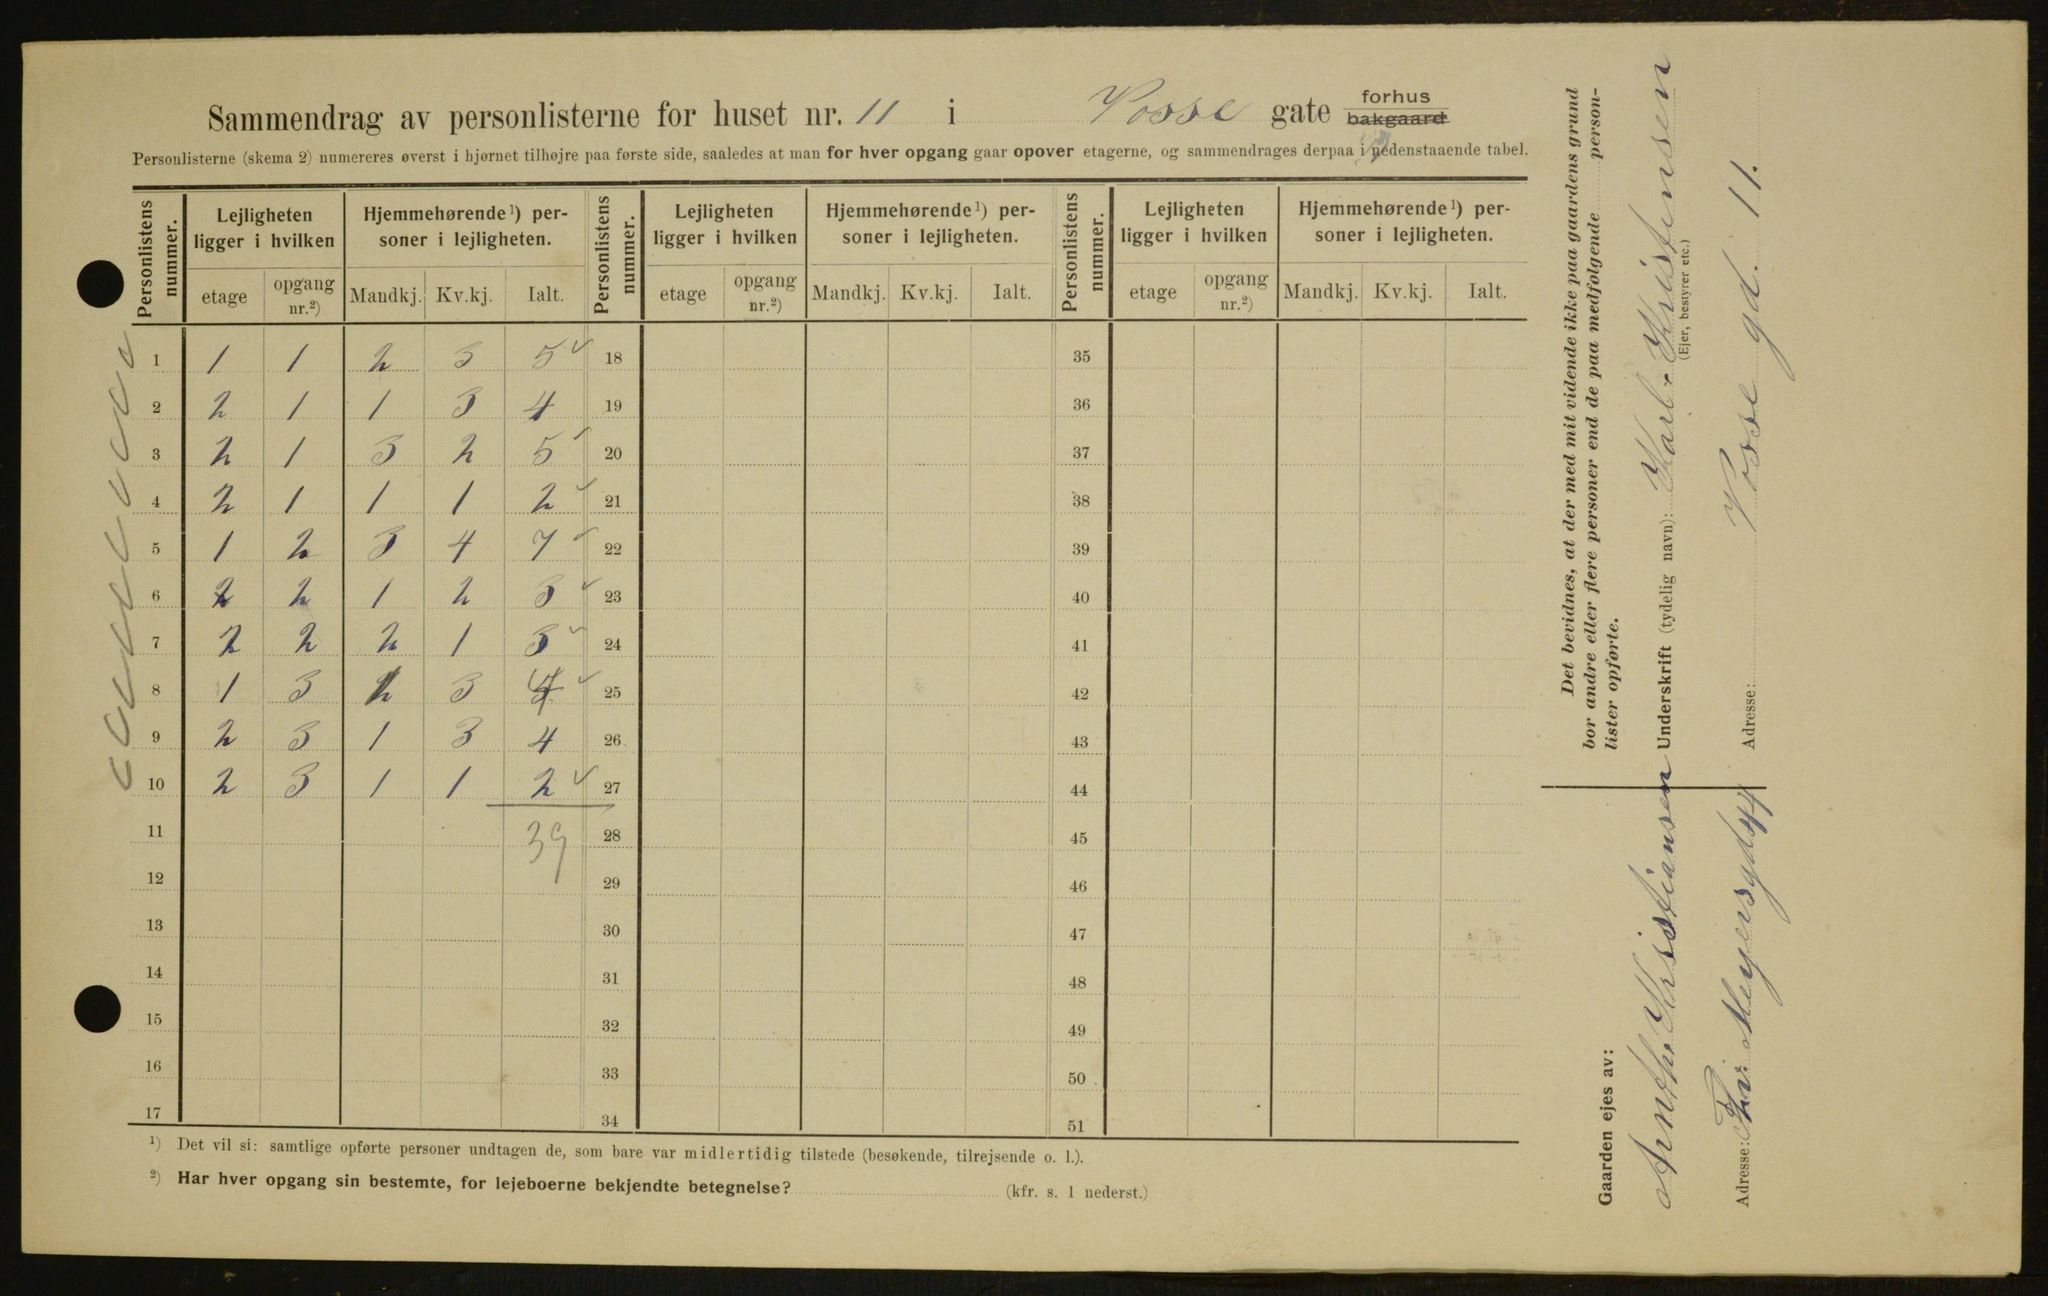 Sammendrag av personlisterne for huset nr. 11 i Vosse gate forhus bakgaard
Personlisterne (skema 2) numereres øverst i hjørnet tilhøjre paa første side, saaledes at man for hver opgang gaar opover etagerne, og sammendrages derpaa i nedenstaaende tabel.
Personlistens nummer. Lejligheten ligger i hvilken Hjemmehørende ¹) personer i lejligheten. Personlistens nummer. Lejligheten ligger i hvilken Hjemmehørende ¹) personer i lejligheten. Personlistens nummer. Lejligheten ligger i hvilken Hjemmehørende ¹) personer i lejligheten.
etage opgang nr.²) Mandkj. Kv.kj. Ialt. etage opgang nr.²) Mandkj. Kv.kj. Ialt. etage opgang nr.²) Mandkj. Kv.kj. Ialt.
1 1 1 2 3 5 18 35
2 2 1 1 3 4 19 36
3 2 1 3 2 5 20 37
4 2 1 1 1 2 21 38
5 1 2 3 4 7 22 39
6 2 2 1 2 3 23 40
7 2 2 2 1 3 24 41
8 1 3 1 3 4 25 42
9 2 3 1 3 4 26 43
10 2 3 1 1 2 27 44
11 39 28 45
12 29 46
13 30 47
14 31 48
15 32 49
16 33 50
17 34 51
¹) Det vil si: samtlige opførte personer undtagen de, som bare var midlertidig tilstede (besøkende, tilrejsende o. l.).
²) Har hver opgang sin bestemte, for lejeboerne bekjendte betegnelse? (kfr. s. 1 nederst.)
Det bevidnes, at der med mit vidende ikke paa gaardens grund
bor andre eller flere personer end de paa medfølgende person-
lister opførte.
Underskrift (tydelig navn): Karl Kristensen
(Ejer, bestyrer etc.)
Adresse: Vosse gd. 11.
Gaarden ejes av:
Anth. Kristiansen
Adresse: Thv. Meyersgd 44